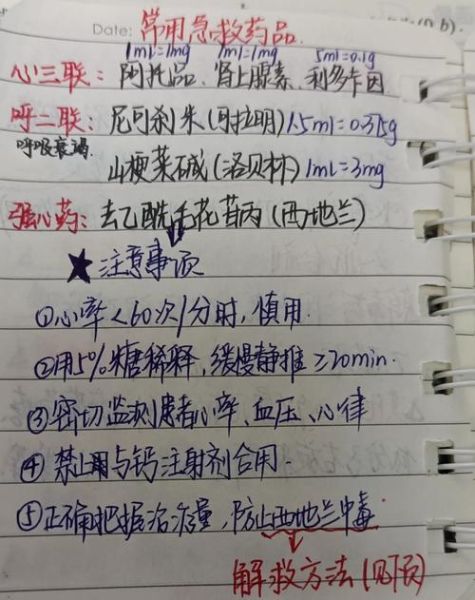 Date: 常用急救药品
1ml=1mg 1ml=1mg 5ml=0.1g
心三联：阿托品、肾上腺素、利多卡因
呼二联：尼可刹米(可拉明)1.5ml=0.375g
呼吸衰竭
山梗菜碱(洛贝林)1ml=3mg
强心药：去乙酰毛花苷丙(西地兰)
★注意事项
①心率<60次/分时,慎用.
②用5%糖稀释,缓慢静推≥20min.
③密切监测患者心率、血压、心律
④禁止用与钙注射剂合用.
⑤正确把握治疗量,防止西地兰中毒
解救方法(见下页)